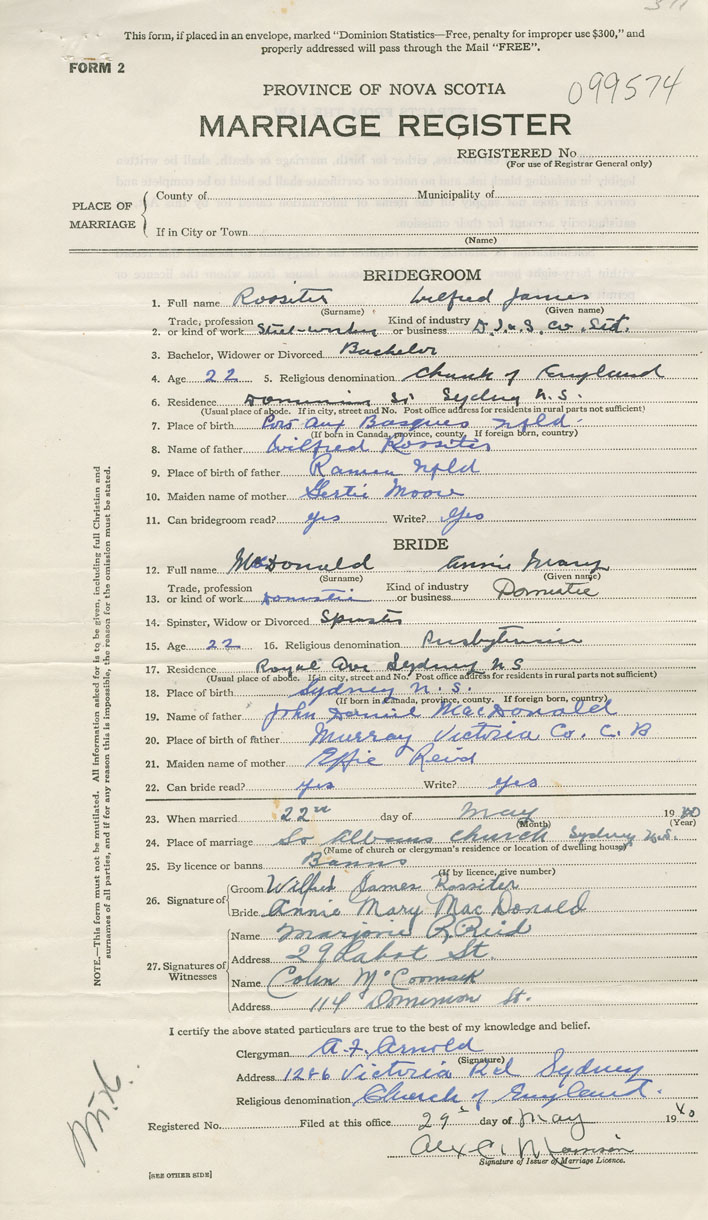 This form, if placed in an envelope, marked "Dominion Statistics—Free, penalty for improper use $300," and
properly addressed will pass through the Mail "FREE".
FORM 2
PROVINCE OF NOVA SCOTIA
099574
MARRIAGE REGISTER
REGISTERED No.
(For use of Registrar General only)
PLACE OF MARRIAGE
County of Municipality of
If in City or Town
(Name)
BRIDEGROOM
1. Full name Rossiter Wilfred James
(Surname) (Given name)
2. Trade, profession or kind of work Steel-worker Kind of industry or business D.I.&S. Co. Ltd.
3. Bachelor, Widower or Divorced Bachelor
4. Age 22 5. Religious denomination Church of England
6. Residence Dominion St Sydney N.S.
(Usual place of abode. If in city, street and No. Post office address for residents in rural parts not sufficient)
7. Place of birth Port Aux Basques Nfld.
(If born in Canada, province, county. If foreign born, country)
8. Name of father Wilfred Rossiter
9. Place of birth of father Ramea Nfld
10. Maiden name of mother Gertie Moore
11. Can bridegroom read? yes Write? yes
BRIDE
12. Full name MacDonald Annie Mary
(Surname) (Given name)
13. Trade, profession or kind of work Domestic Kind of industry or business Domestic
14. Spinster, Widow or Divorced Spinster
15. Age 22 16. Religious denomination Presbyterian
17. Residence Royal Ave Sydney N.S
(Usual place of abode. If in city, street and No. Post office address for residents in rural parts not sufficient)
18. Place of birth Sydney N.S.
(If born in Canada, province, county. If foreign born, country)
19. Name of father John Daniel MacDonald
20. Place of birth of father Murray Victoria Co. C.B
21. Maiden name of mother Effie Reid
22. Can bride read? yes Write? yes
23. When married 22nd day of May 1940
(Month) (Year)
24. Place of marriage St Albans Church Sydney N.S.
(Name of church or clergyman's residence or location of dwelling house)
25. By licence or banns Banns
(If by licence, give number)
26. Signature of
Groom Wilfred James Rossiter
Bride Annie Mary MacDonald
27. Signatures of Witnesses
Name Marjorie R. Reid
Address 29 Cabot St.
Name Colin McCormack
Address 114 Dominion St.
I certify the above stated particulars are true to the best of my knowledge and belief.
Clergyman A.F. Arnold
(Signature)
Address 1246 Victoria Rd Sydney
Religious denomination Church of England.
Registered No. Filed at this office 29th day of May 1940
Alex C.
Signature of Issuer of Marriage Licence.
[SEE OTHER SIDE]
NOTE.—This form must not be mutilated. All information asked for is to be given, including full Christian and
surnames of all parties, and if for any reason this is impossible, the reason for the omission must be stated.